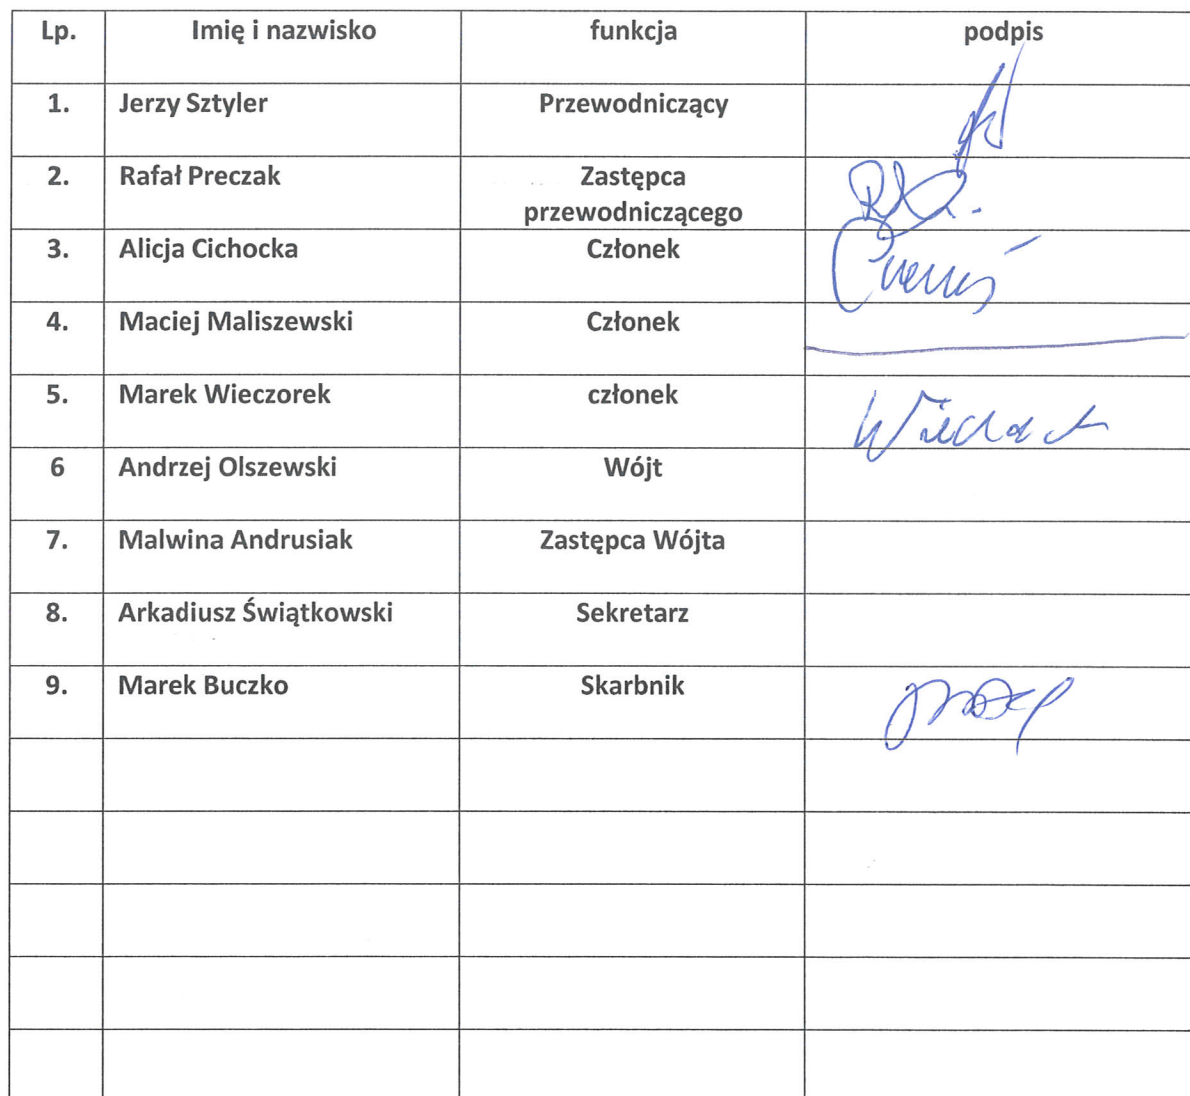 Lp. Imię i nazwisko funkcja podpis
1. Jerzy Sztyler Przewodniczący
2. Rafał Preczak Zastępca
przewodniczącego
3. Alicja Cichocka Członek
4. Maciej Maliszewski Członek
5. Marek Wieczorek członek
6 Andrzej Olszewski Wójt
7. Malwina Andrusiak Zastępca Wójta
8. Arkadiusz Świątkowski Sekretarz
9. Marek Buczko Skarbnik